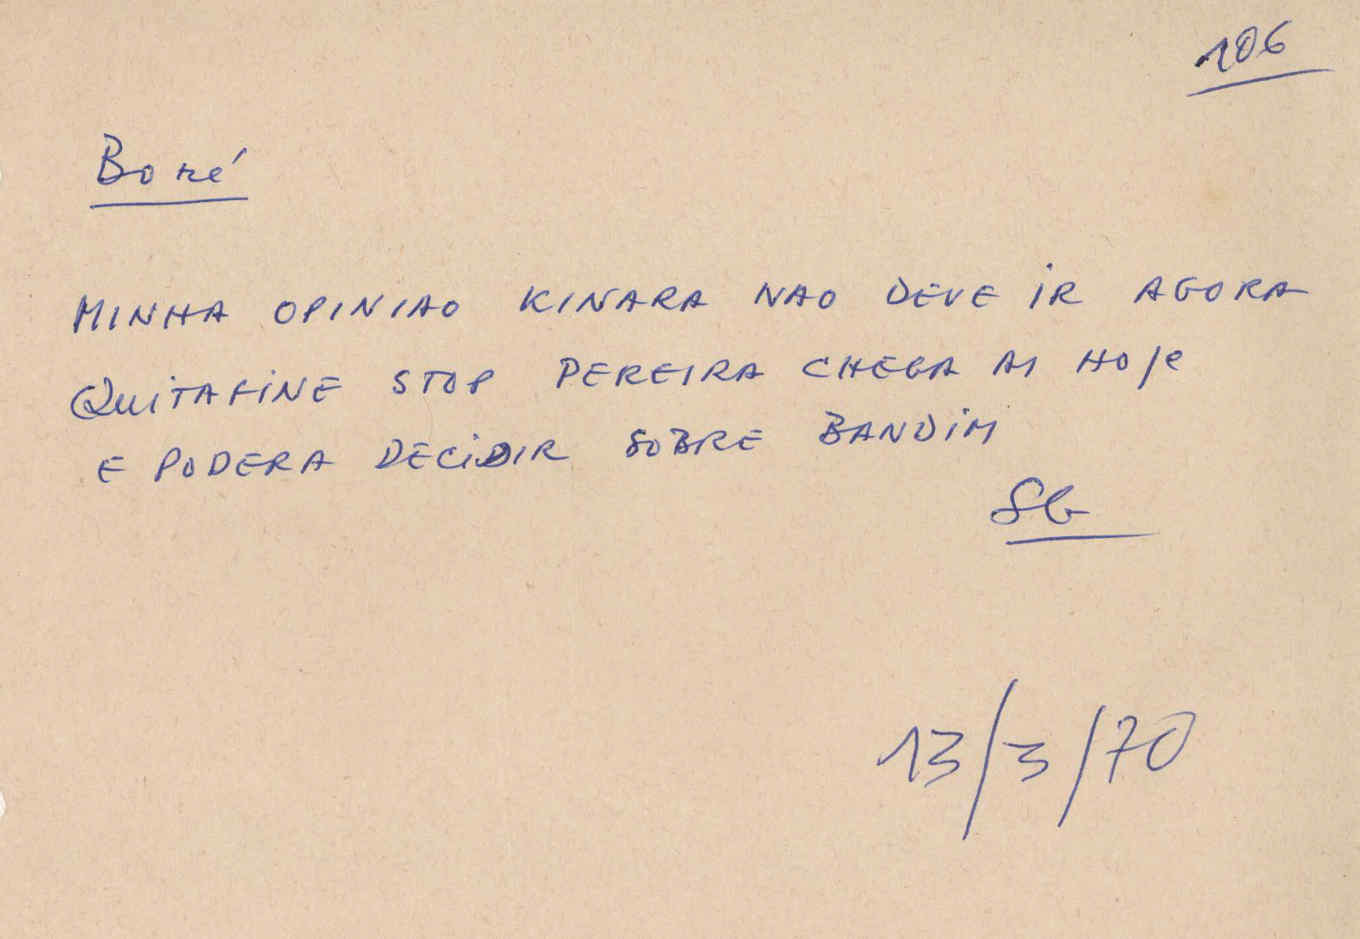 106
Boké
MINHA OPINIAO KINARA NAO DEVE IR AGORA
QUITAFINE STOP PEREIRA CHEGA AI HOJE
E PODERA DECIDIR SOBRE BANDIM
13/3/70